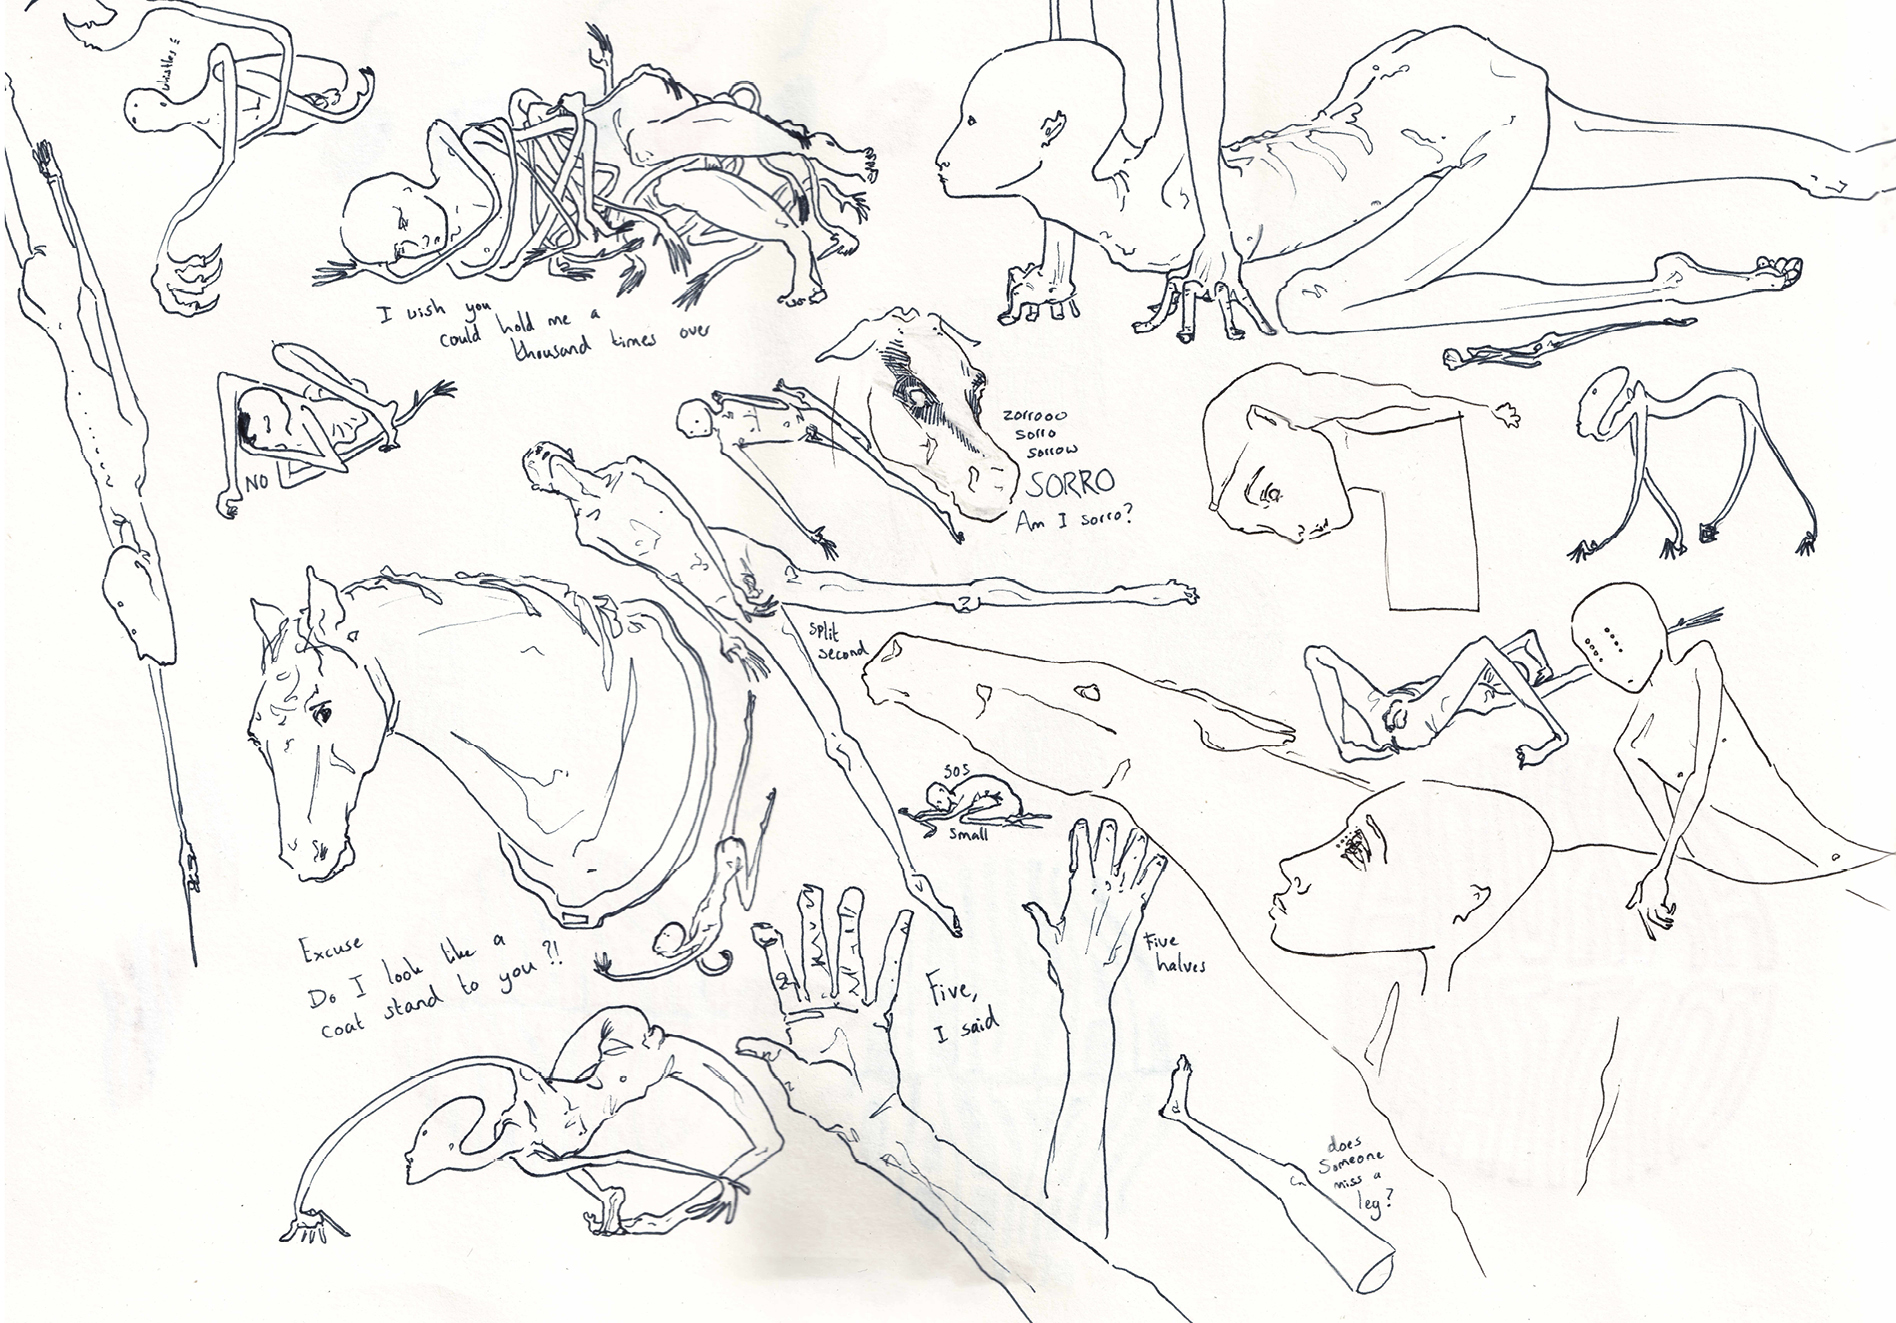 whistles
I wish you
could hold me a
thousand times over
NO
zorrooo
sorro
sorrow
SORRO
Am I sorro?
split
second
SOS
small
Excuse
Do I look like a
coat stand to you?!
Five,
I said
Five
halves
does
Someone
miss a
leg?